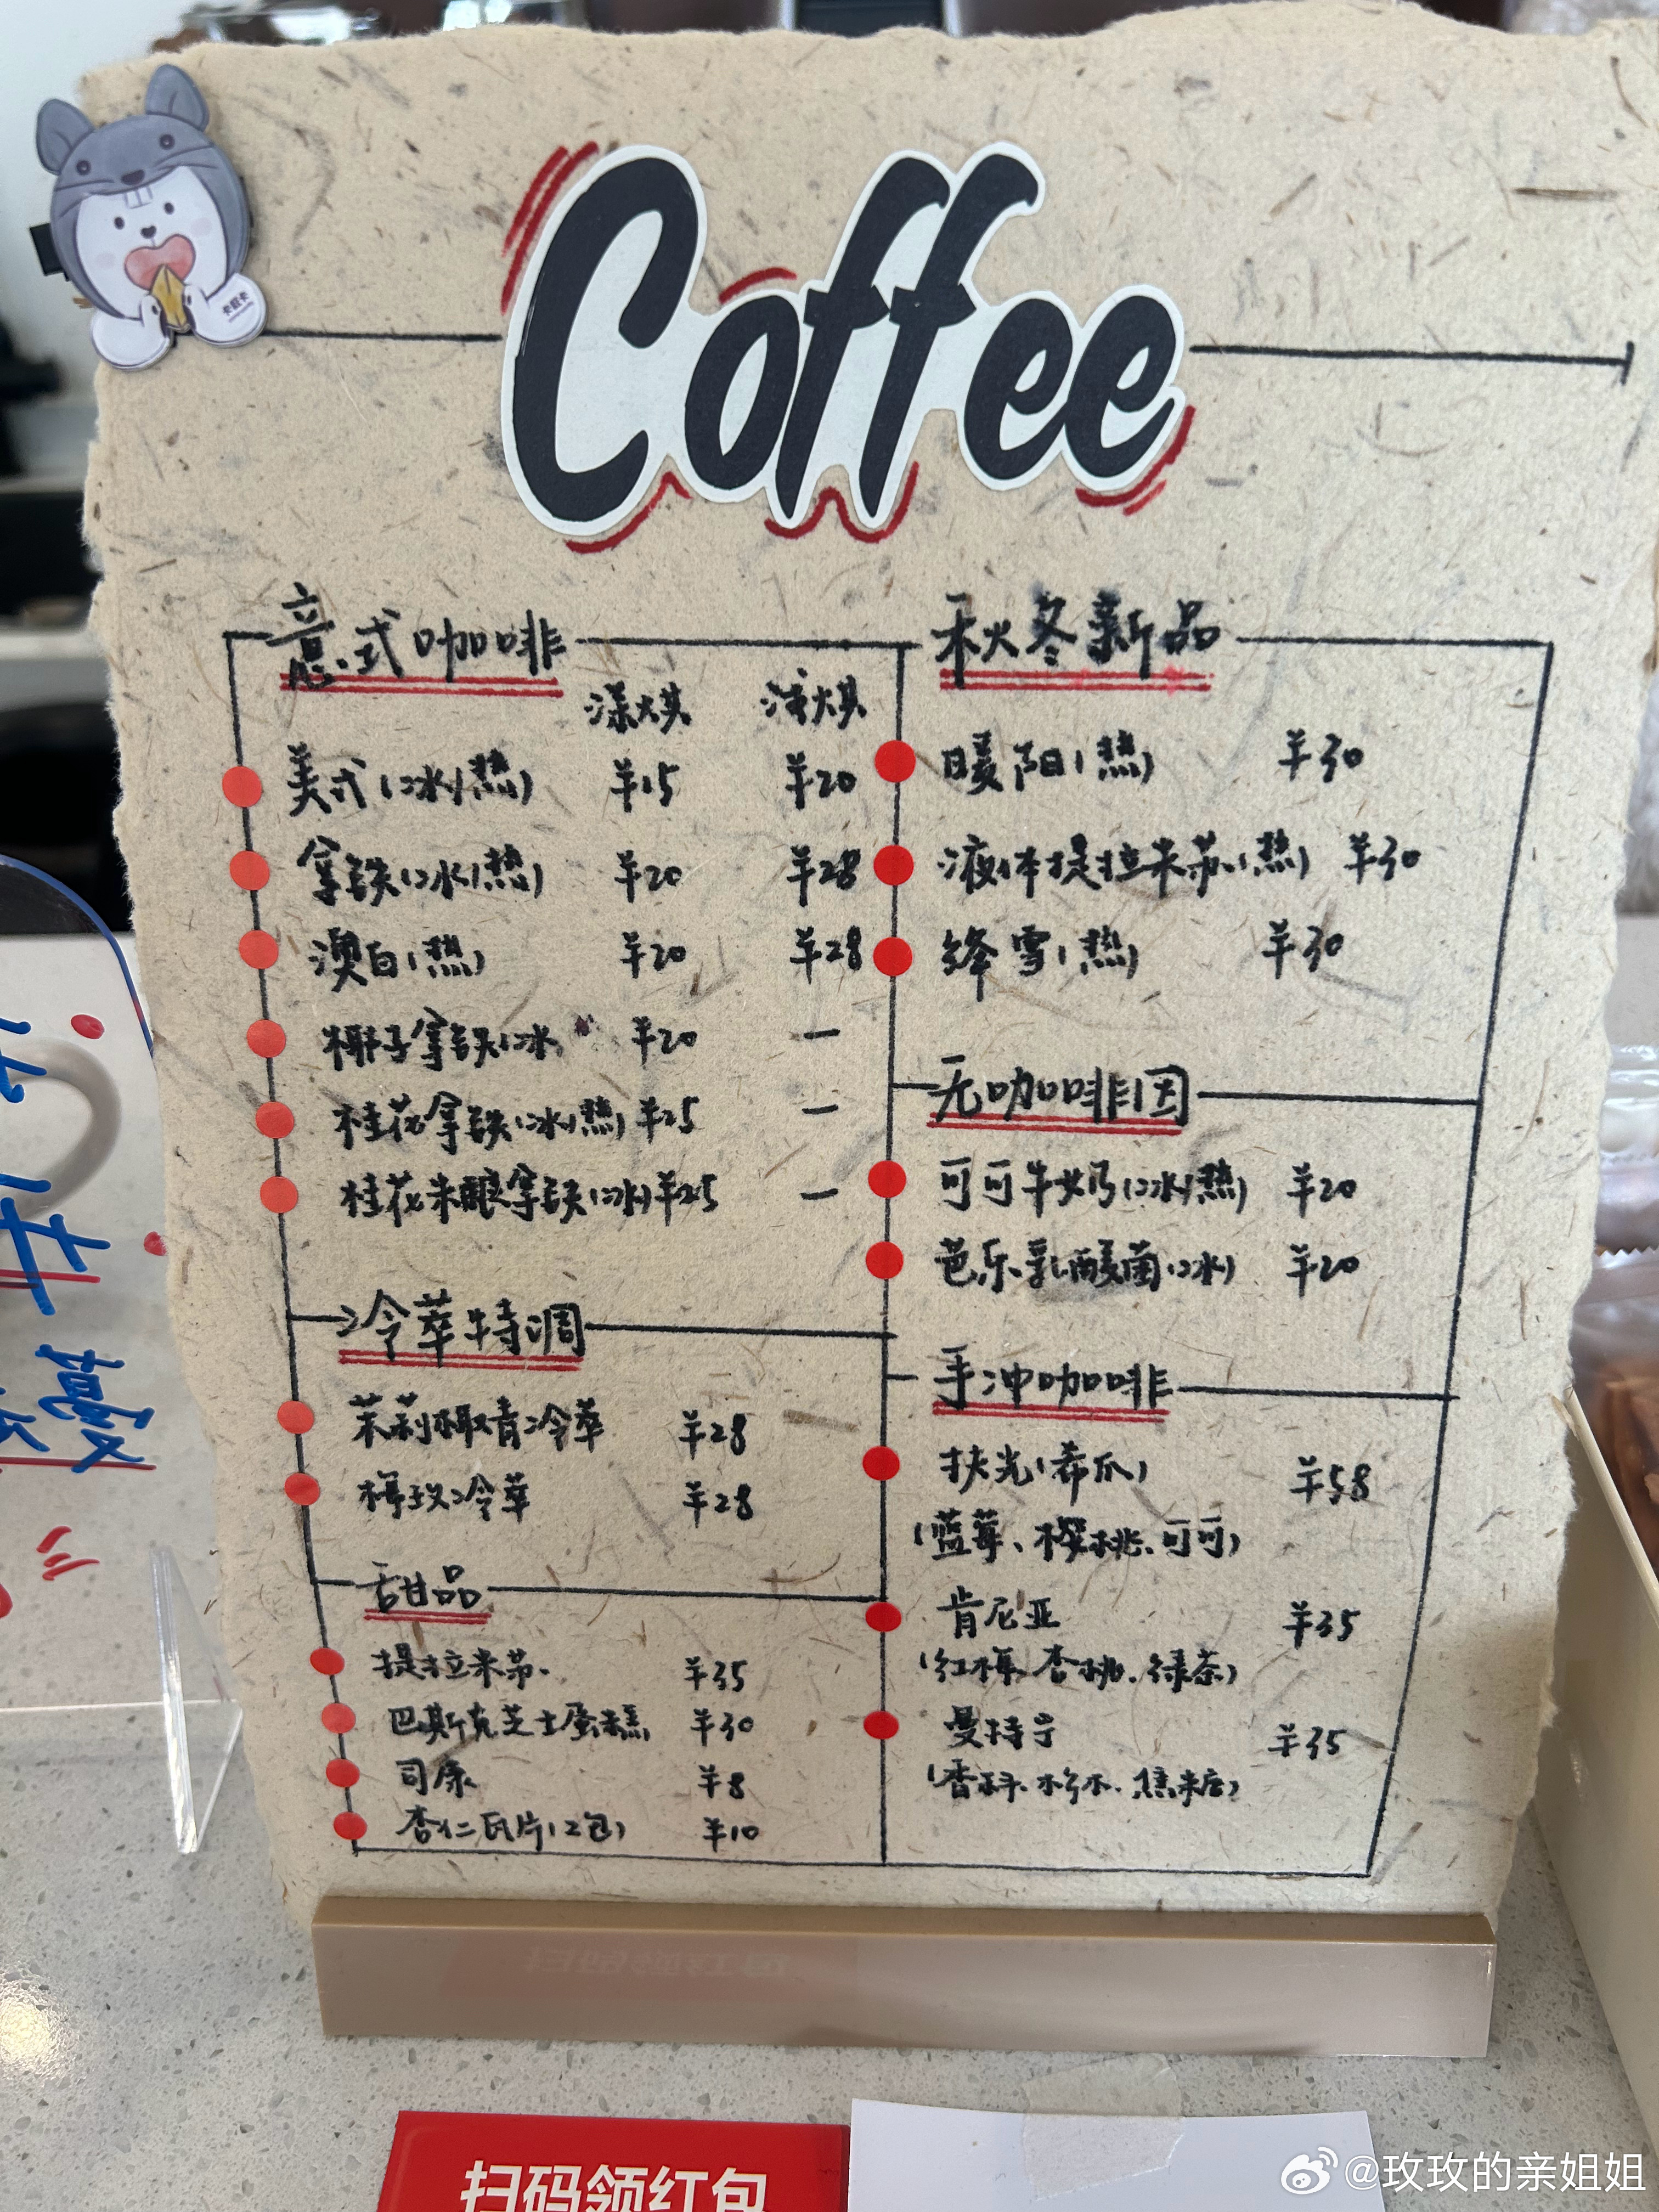 Coffee
意式咖啡
深烘 浅烘
美式(冰/热) ¥15 ¥20
拿铁(冰/热) ¥20 ¥28
澳白(热) ¥20 ¥28
椰子拿铁(冰 ¥20 —
桂花拿铁(冰/热) ¥25 —
桂花米酿拿铁(冰) ¥25 —
冷萃特调
茉莉椰青冷萃 ¥28
梅玫冷萃 ¥28
甜品
提拉米苏 ¥35
巴斯克芝士蛋糕 ¥30
司康 ¥8
杏仁瓦片(2包) ¥10
秋冬新品
暖阳(热) ¥30
液体提拉米苏(热) ¥30
绛雪(热) ¥30
无咖啡因
可可牛奶(冰/热) ¥20
芭乐乳酸菌(冰) ¥20
手冲咖啡
扶光(希爪) ¥58
(蓝莓、樱桃、可可)
肯尼亚 ¥35
(红莓、杏桃、绿茶)
曼特宁 ¥35
(香料、杉木、焦糖)
扫码领红包
@玫玫的亲姐姐